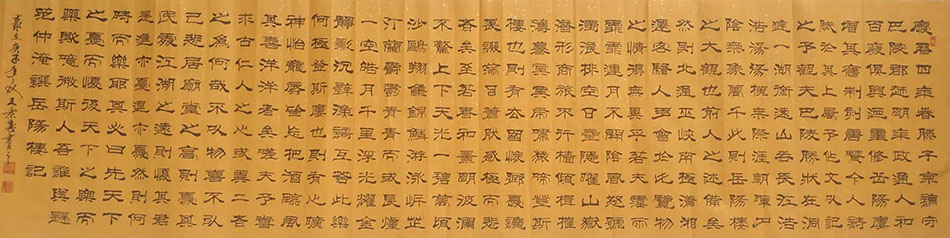 慶曆四年春滕子京謫守
巴陵郡越明年政通人和
百廢俱興乃重修岳陽樓
增其舊制刻唐賢今人詩
賦於其上屬予作文以記
之予觀夫巴陵勝狀在洞
庭一湖銜遠山吞長江浩
浩湯湯橫無際涯朝暉夕
陰氣象萬千此則岳陽樓
之大觀也前人之述備矣
然則北通巫峽南極瀟湘
遷客騷人多會於此覽物
之情得無異乎若夫霪雨
霏霏連月不開陰風怒號
濁浪排空日星隱曜山嶽
潛形商旅不行檣傾楫摧
薄暮冥冥虎嘯猿啼登斯
樓也則有去國懷鄉憂讒
畏譏滿目蕭然感極而悲
者矣至若春和景明波瀾
不驚上下天光一碧萬頃
沙鷗翔集錦鱗游泳岸芷
汀蘭鬱鬱青青而或長煙
一空皓月千里浮光躍金
靜影沉璧漁歌互答此樂
何極登斯樓也則有心曠
神怡寵辱皆忘把酒臨風
其喜洋洋者矣嗟夫予嘗
求古仁人之心或異二者
之為何哉不以物喜不以
己悲居廟堂之高則憂其
民處江湖之遠則憂其君
是進亦憂退亦憂然則何
時而樂耶其必曰先天下
之憂而憂後天下之樂而
樂歟噫微斯人吾誰與歸
范仲淹撰岳陽樓記
歲在庚子年